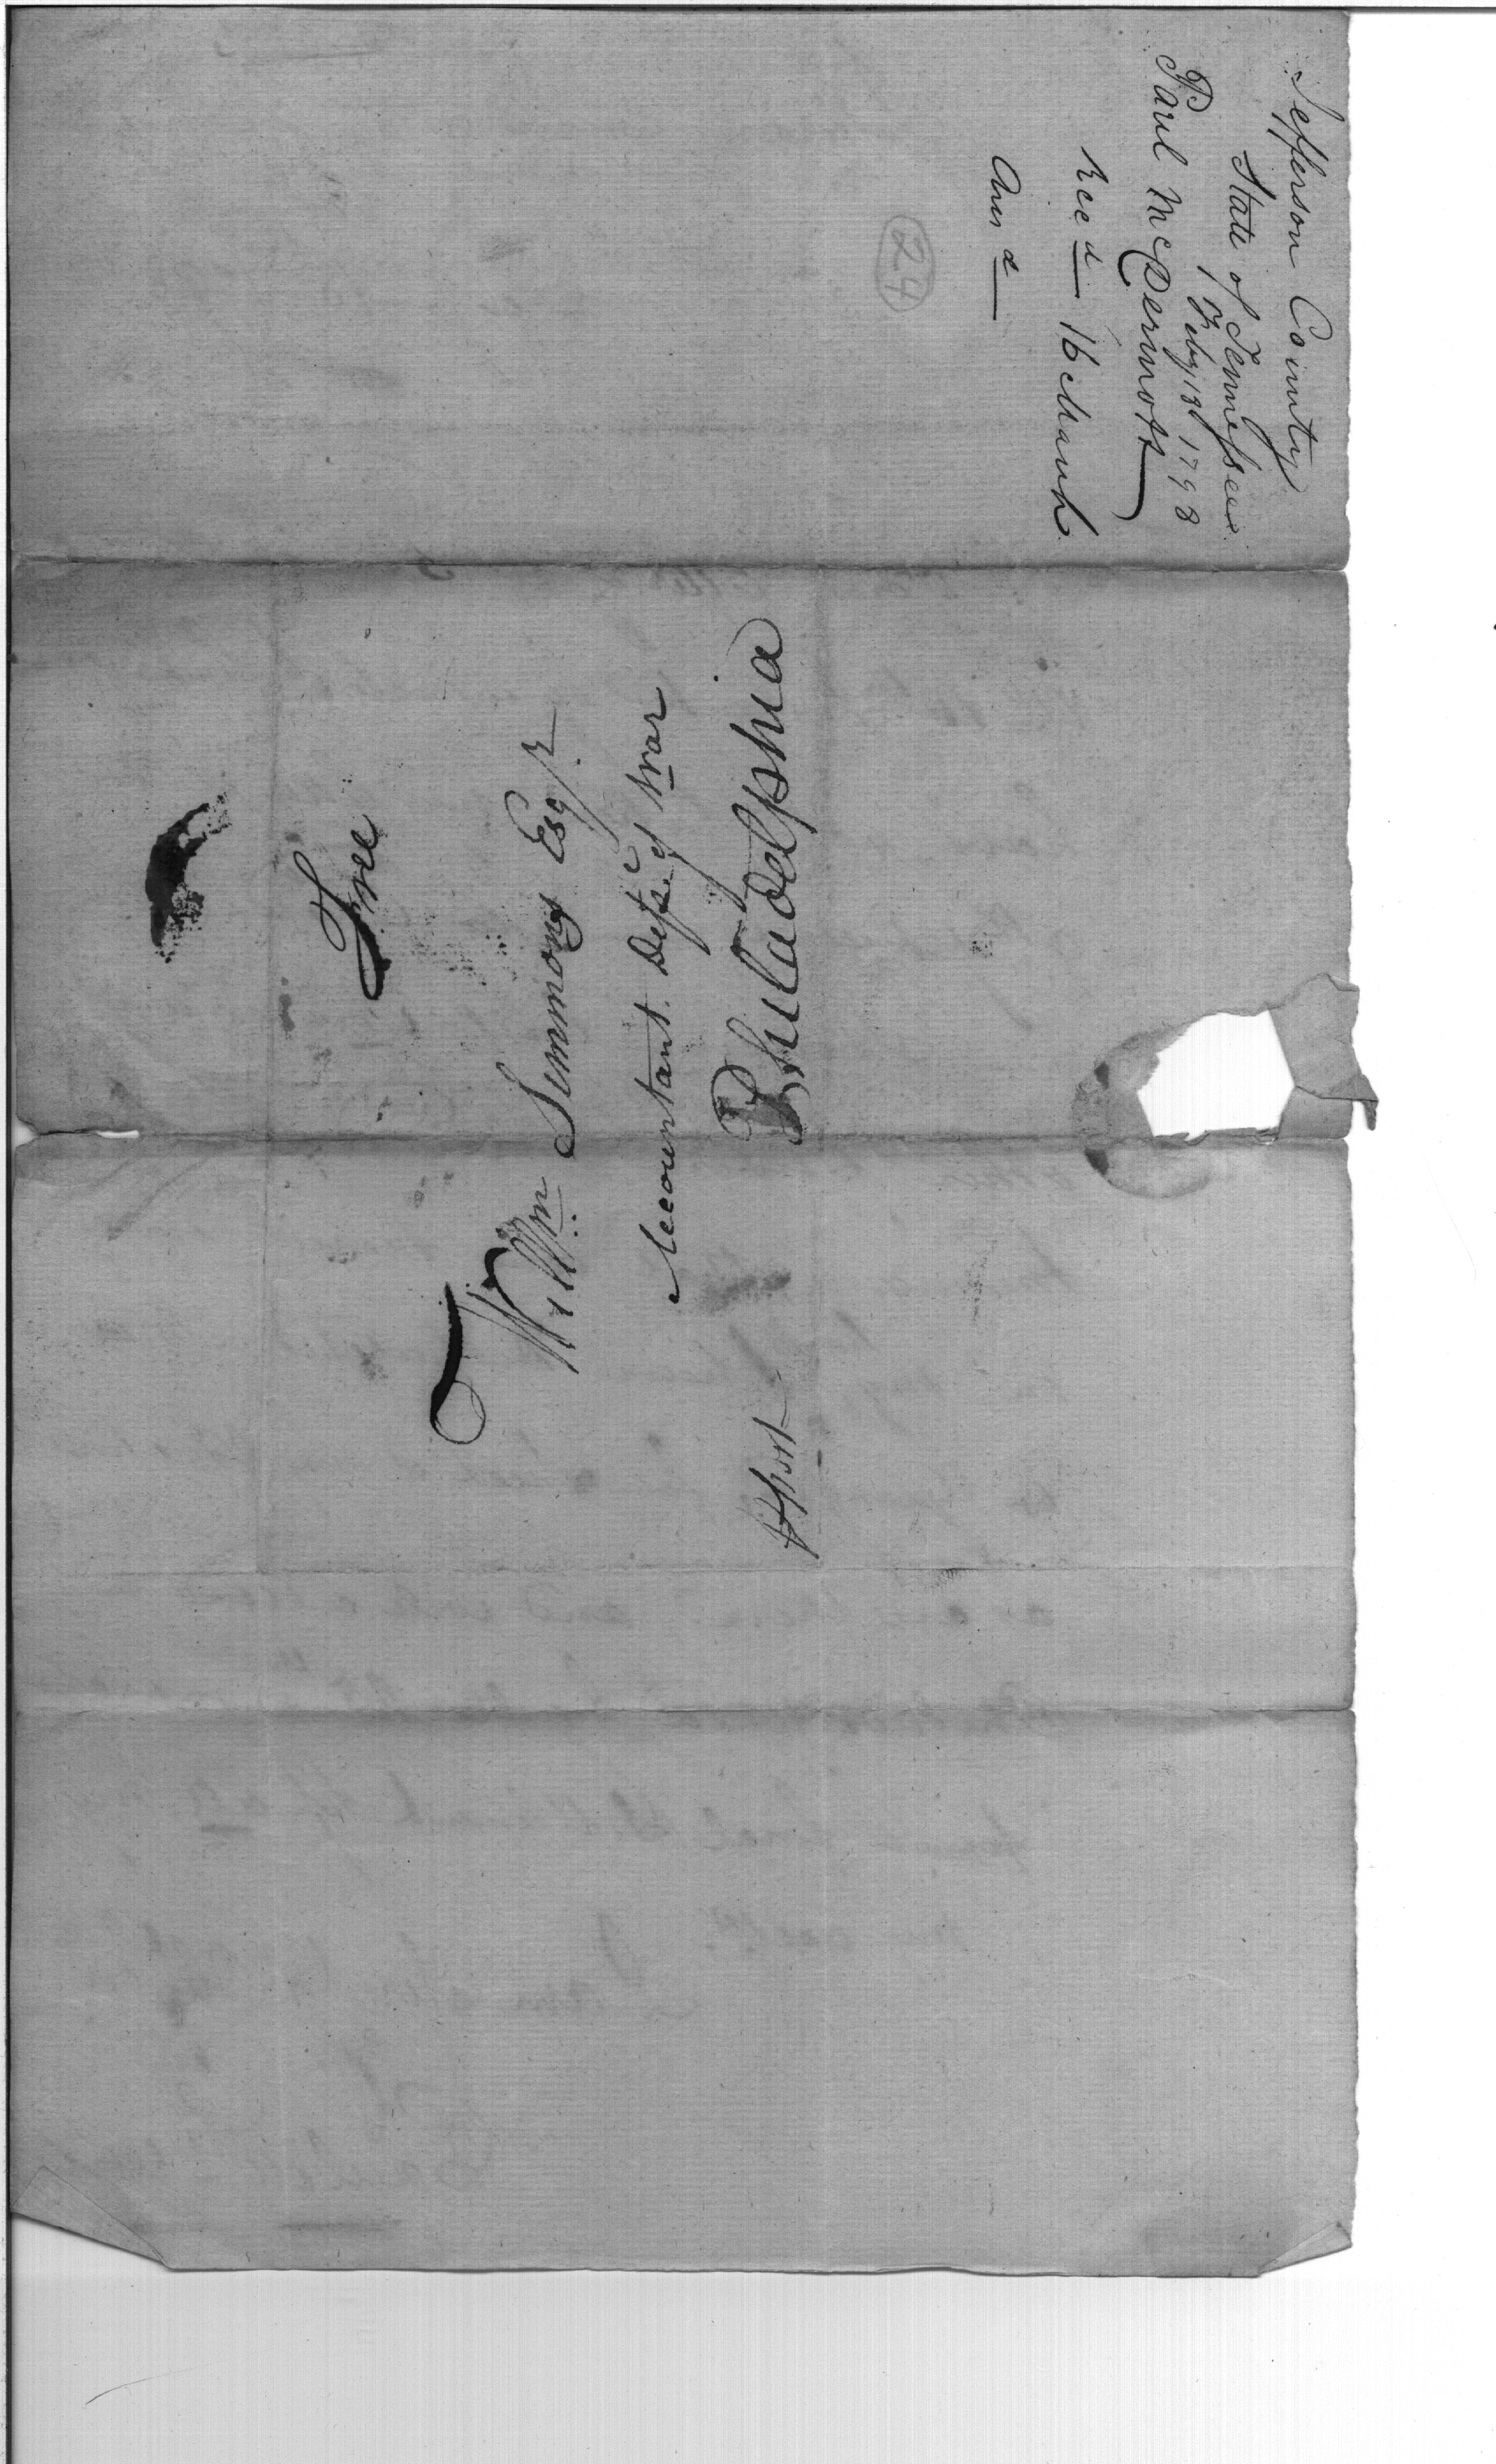 Jefferson County
State of Tennessee
Feby 13 1798
Paul McDermott
Recd 16 March
Ansd
24
Free
Willm Simmons Esqr.
Accountant Dept. of War
Philadelphia